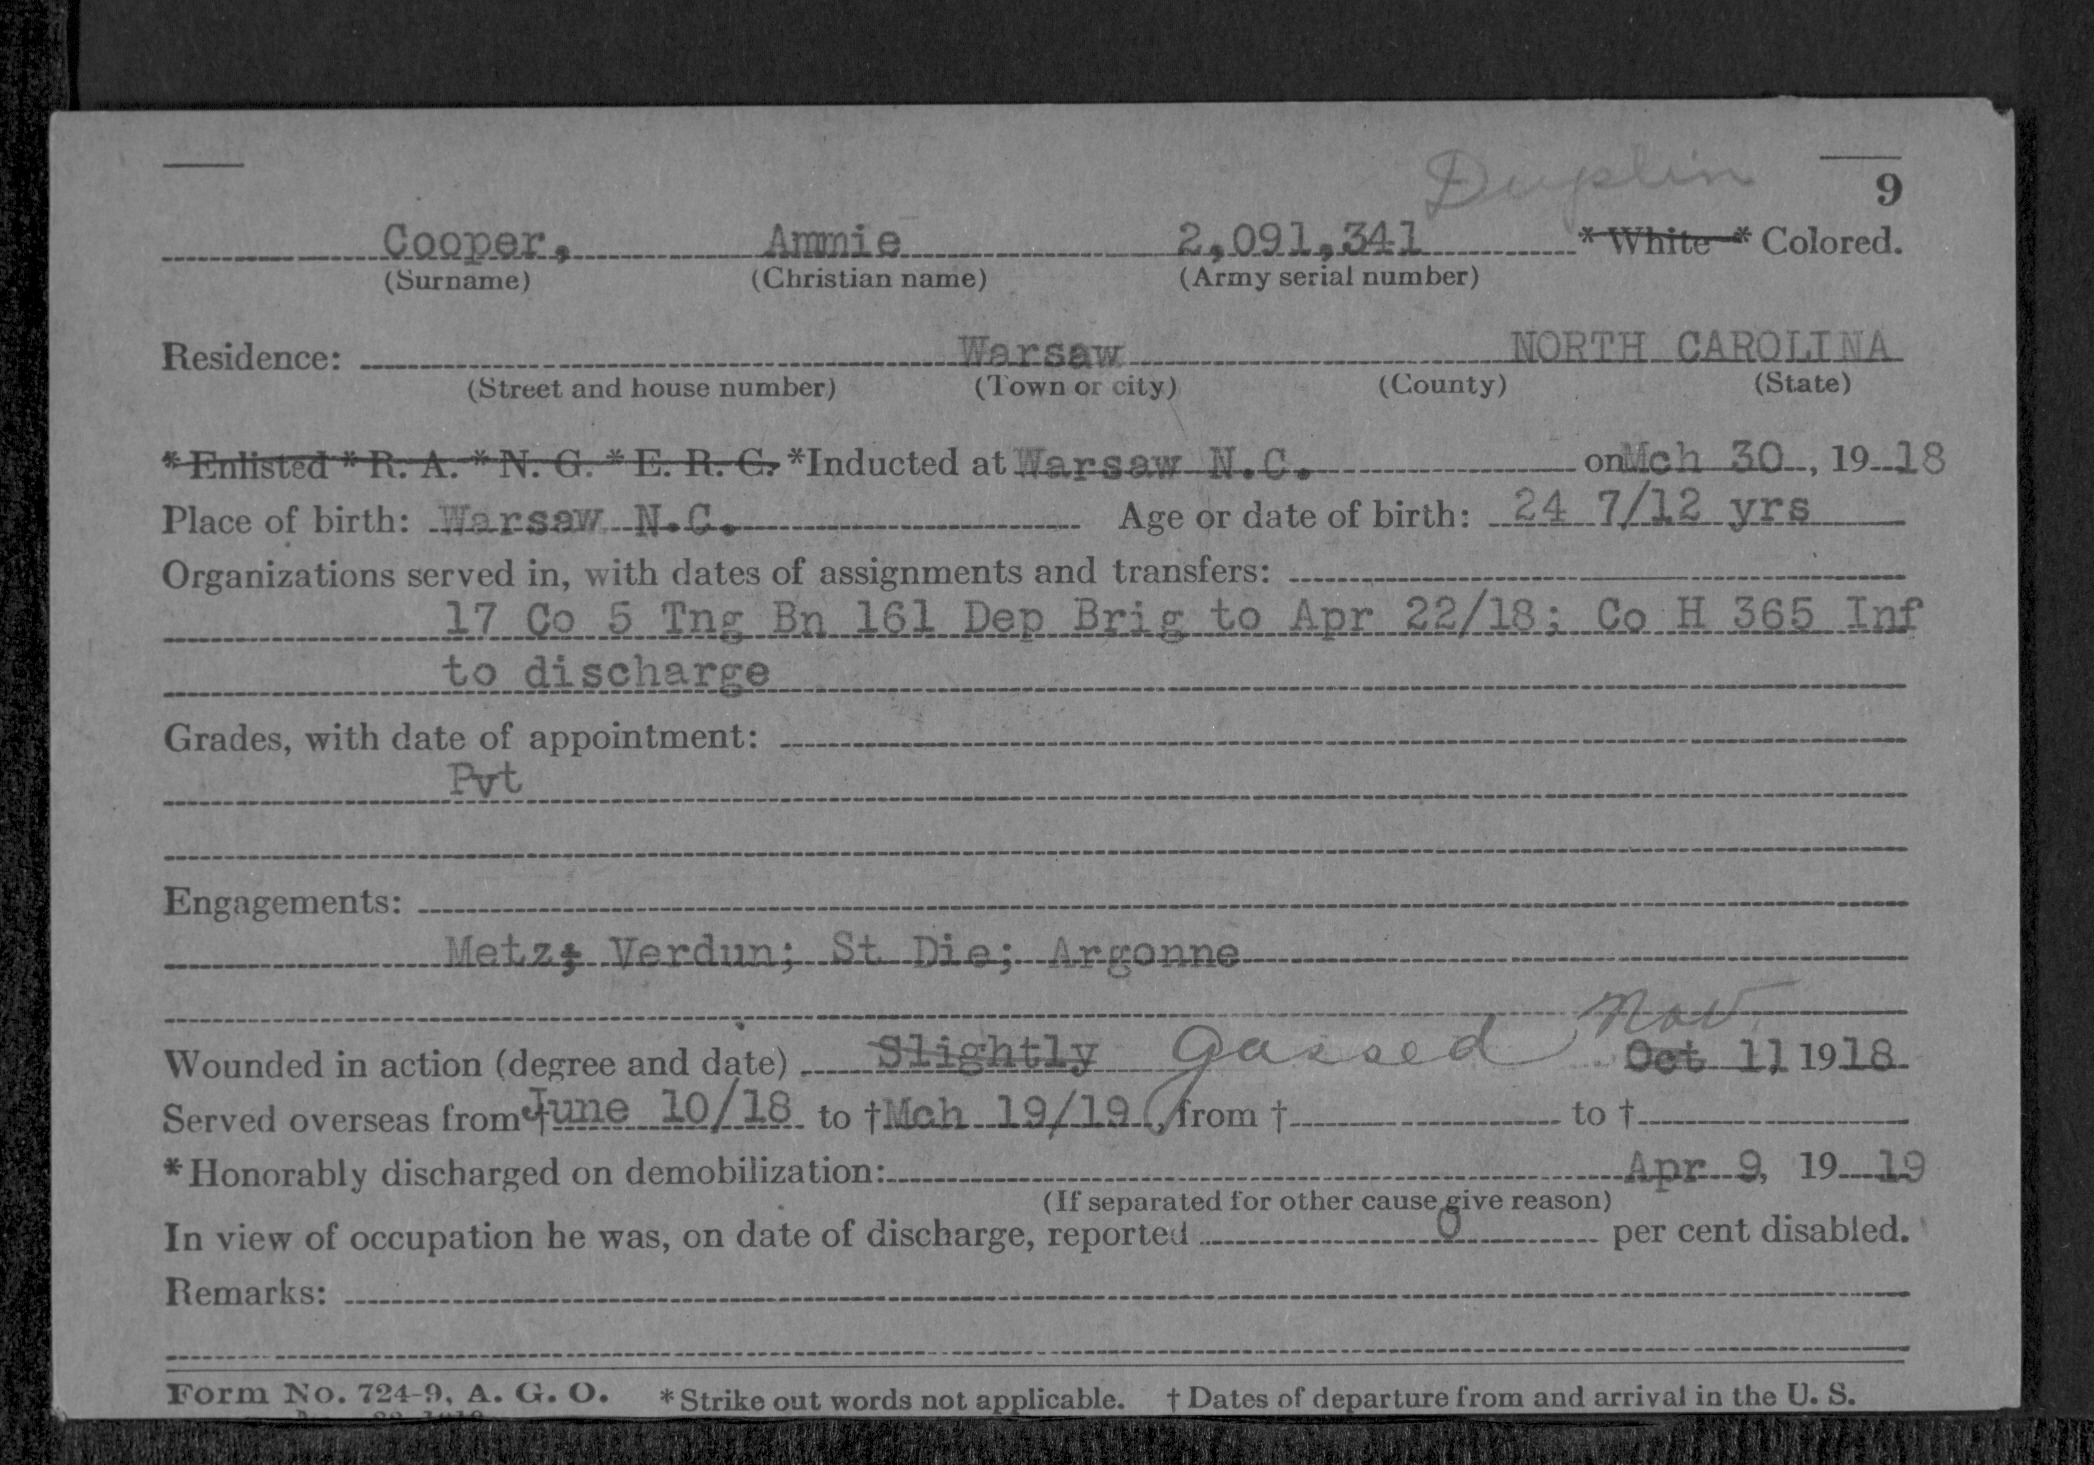 Duplin
9
Cooper, Ammie 2,091,341 * White * Colored.
(Surname) (Christian name) (Army serial number)
Residence: Warsaw NORTH CAROLINA
(Street and house number) (Town or city) (County) (State)
* Enlisted * R. A. * N. G. * E. R. C. *Inducted at Warsaw N.C. on Mch 30, 19 18
Place of birth: Warsaw N.C. Age or date of birth: 24 7/12 yrs
Organizations served in, with dates of assignments and transfers:
17 Co 5 Tng Bn 161 Dep Brig to Apr 22/18; Co H 365 Inf
to discharge
Grades, with date of appointment:
Pvt
Engagements:
Metz; Verdun; St Die; Argonne
Nov
Wounded in action (degree and date) Slightly Gassed Oct 11, 1918
Served overseas from † June 10/18 to † Mch 19/19, from † to †
* Honorably discharged on demobilization: Apr 9, 19 19
(If separated for other cause give reason)
In view of occupation he was, on date of discharge, reported 0 per cent disabled.
Remarks:
Form No. 724-9, A. G. O. * Strike out words not applicable. † Dates of departure from and arrival in the U. S.